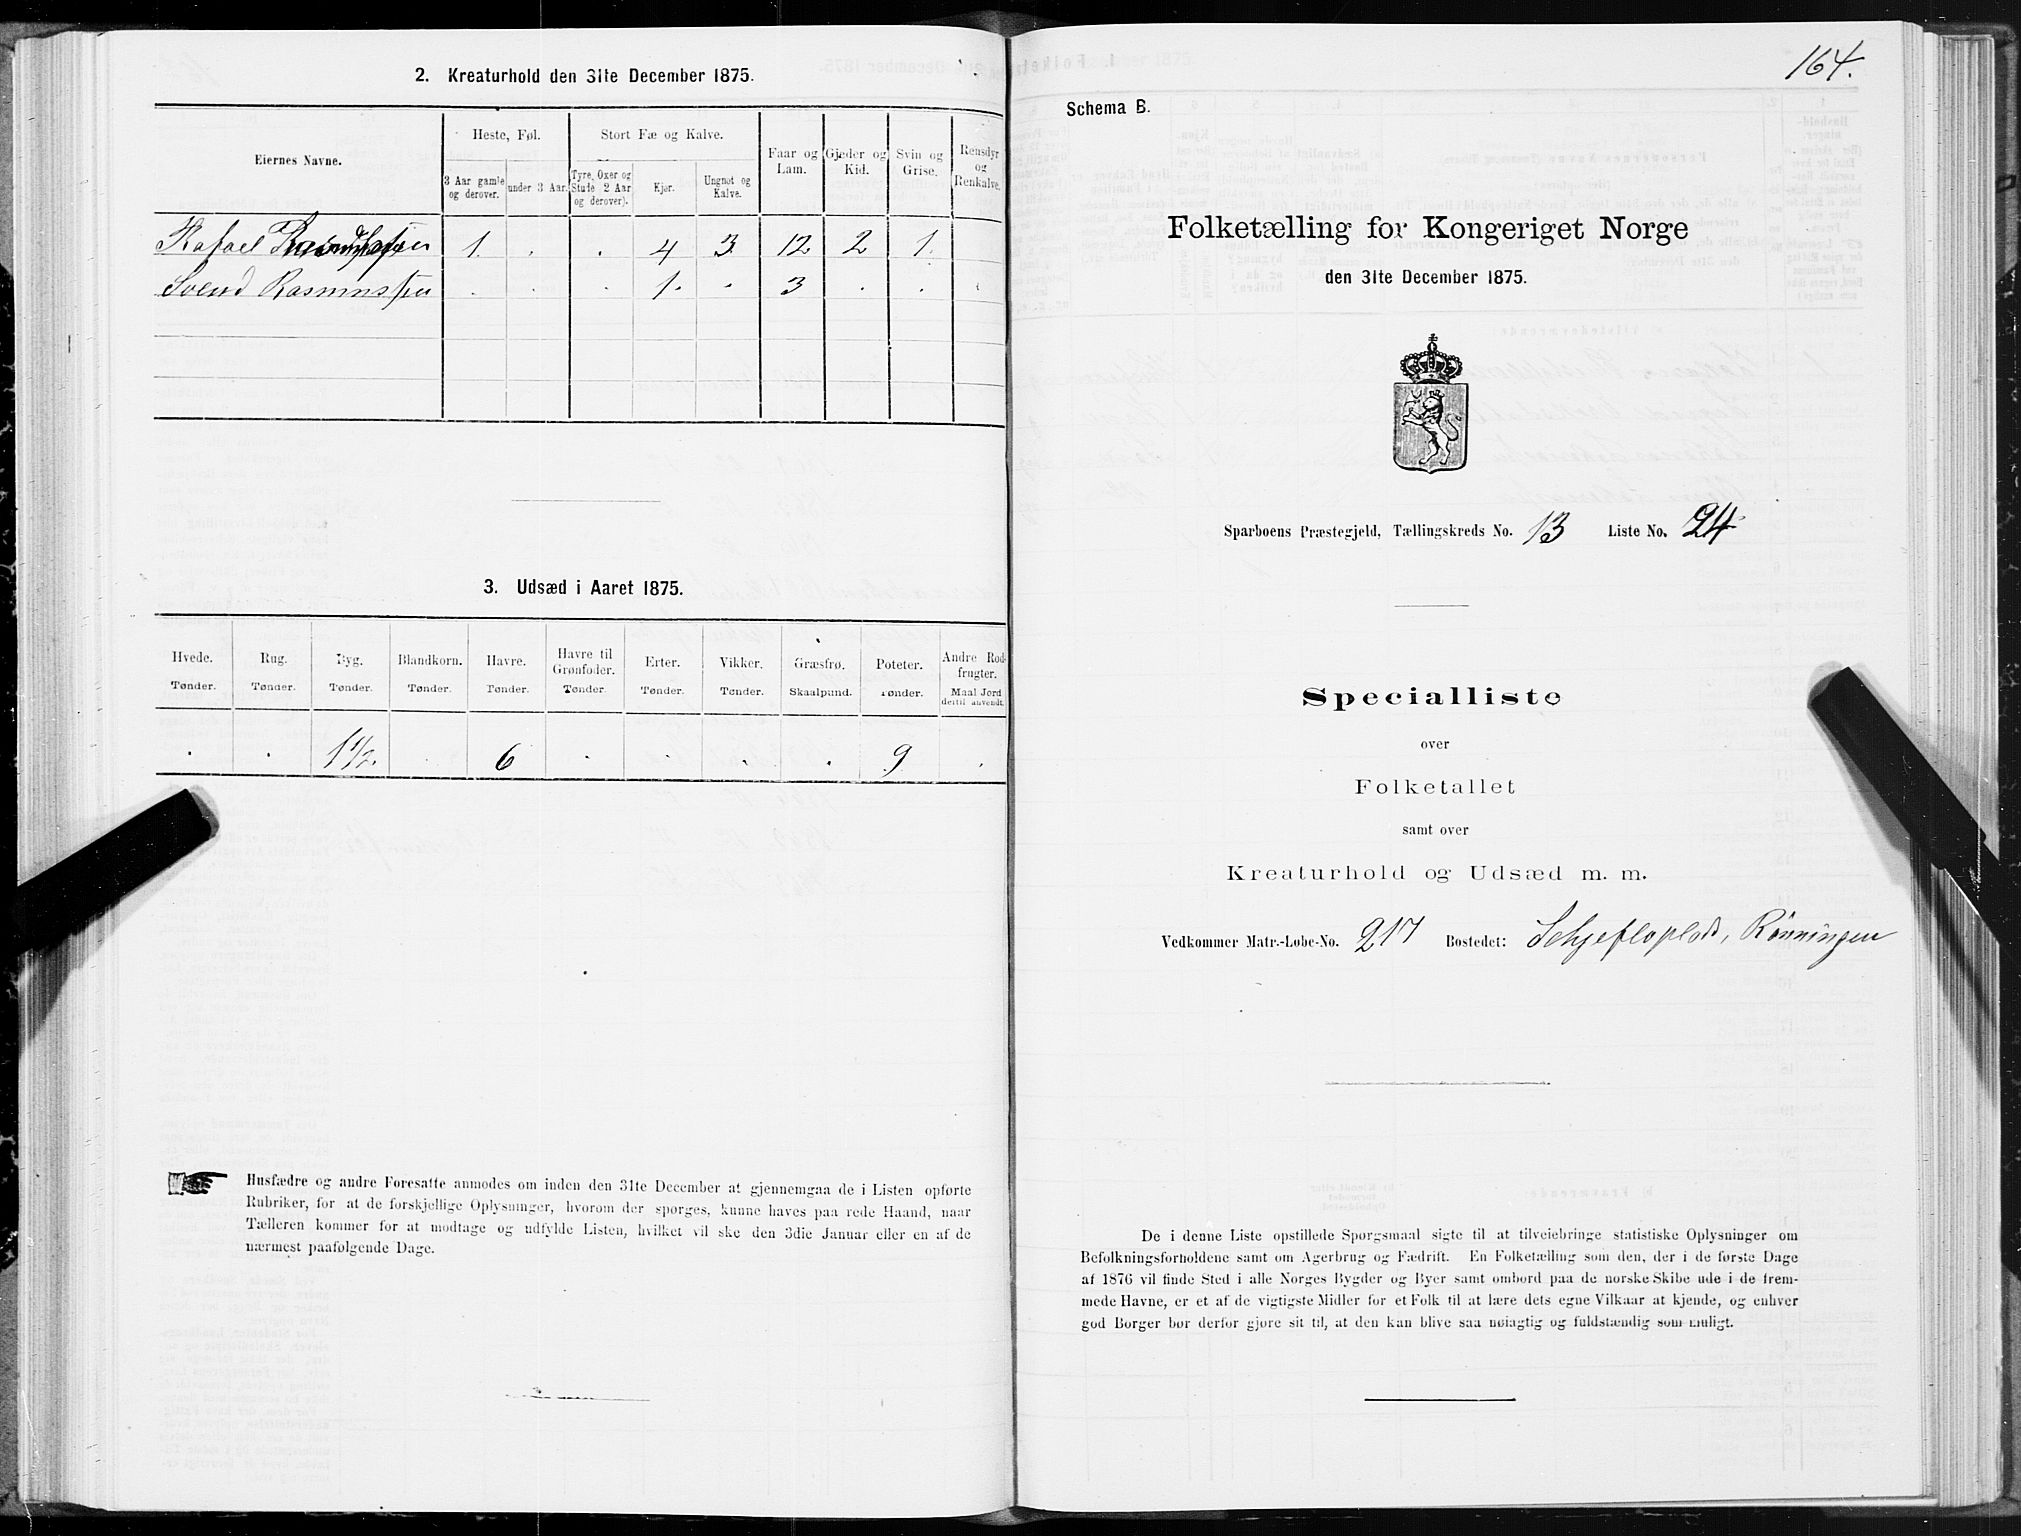 2. Kreaturhold den 31te December 1875.
Eiernes Navne.
Heste, Føl.
Stort Fæ og Kalve.
Faar og Lam.
Gjeder og Kid.
Svin og Grise.
Rensdyr og Renkalve.
3 Aar gamle og derover.
under 3 Aar.
Tyre, Oxer og Stude 2 Aar og derover).
Kjør.
Ungnøt og Kalve.
Rafael 1. . . 4 3 12 2 1.
Svend Rasmussen . . . 1. . 3 . . .
3. Udsæd i Aaret 1875.
Hvede. Rug. Byg. Blandkorn. Havre. Havre til Grønfoder. Erter. Vikker. Græsfrø. Poteter. Andre Rodfrugter.
Tønder. Tønder. Tønder. Tønder. Tønder. Tønder. Tønder. Tønder. Skaalpund. Tønder. Maal Jord dertil anvendt.
. . 1 1/2. . 6 . . . . 9 .
Husfædre og andre Foresatte anmodes om inden den 31te December at gjennemgaa de i Listen opførte
Rubriker, for at de forskjellige Oplysninger, hvorom der spørges, kunne haves paa rede Haand, naar
Tælleren kommer for at modtage og udfylde Listen, hvilket vil ske den 3die Januar eller en af de
nærmest paafølgende Dage.
164.
Schema B.
Folketælling for Kongeriget Norge
den 31te December 1875.
Sparboens Præstegjeld, Tællingskreds No. 13 Liste No. 24
Specialliste
over
Folketallet
samt over
Kreaturhold og Udsæd m. m.
Vedkommer Matr.-Løbe-No. 217 Bostedet: Schjefloplads, Rönningen
De i denne Liste opstillede Spørgsmaal sigte til at tilveiebringe statistiske Oplysninger om
Befolkningsforholdene samt om Agerbrug og Fædrift. En Folketælling som den, der i de første Dage
af 1876 vil finde Sted i alle Norges Bygder og Byer samt ombord paa de norske Skibe ude i de frem-
mede Havne, er et af de vigtigste Midler for et Folk til at lære dets egne Vilkaar at kjende, og enhver
god Borger bør derfor gjøre sit til, at den kan blive saa nøiagtig og fuldstændig som muligt.